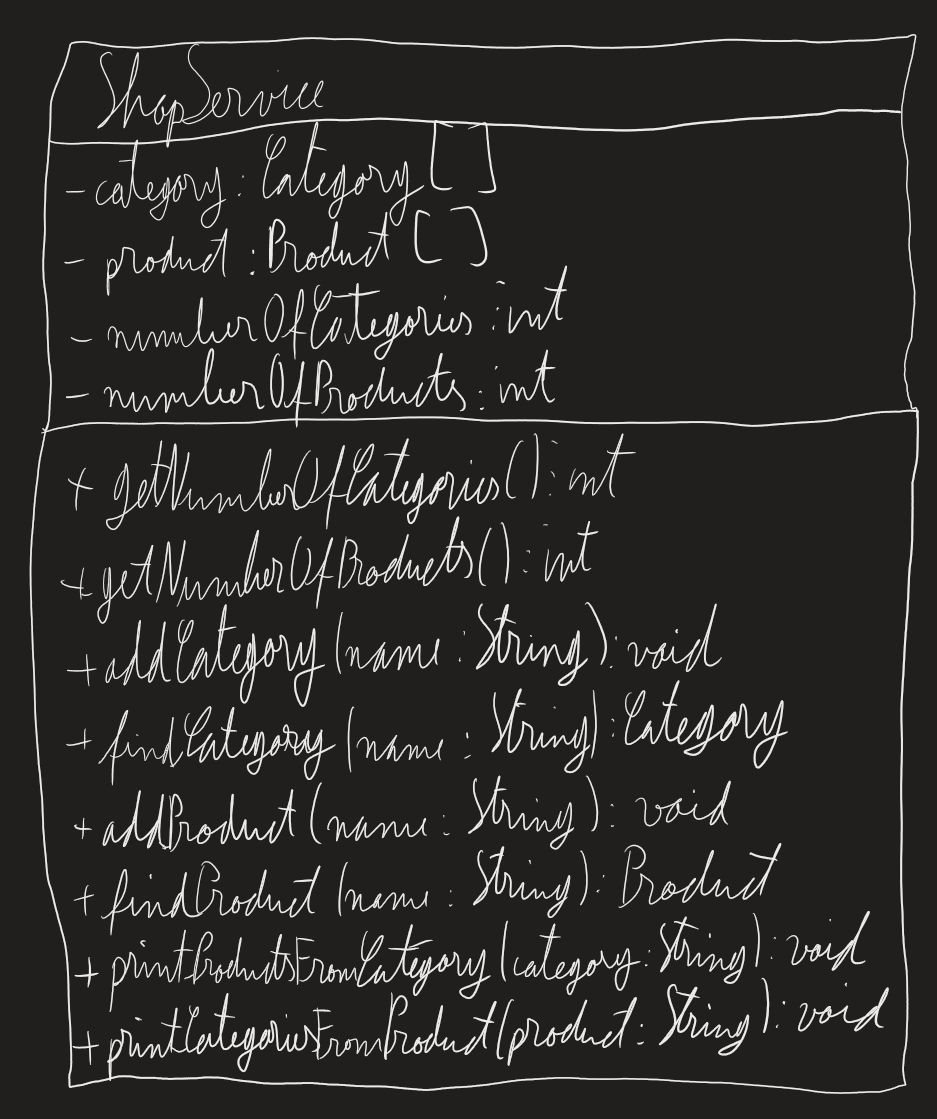 ShopService
- category : Category []
- product : Product []
- numberOfCategories : int
- numberOfProducts : int
+ getNumberOfCategories() : int
+ getNumberOfProducts() : int
+ addCategory (name : String) : void
+ findCategory (name : String) : Category
+ addProduct (name : String) : void
+ findProduct (name : String) : Product
+ printProductsFromCategory (category : String) : void
+ printCategoriesFromProduct (product : String) : void